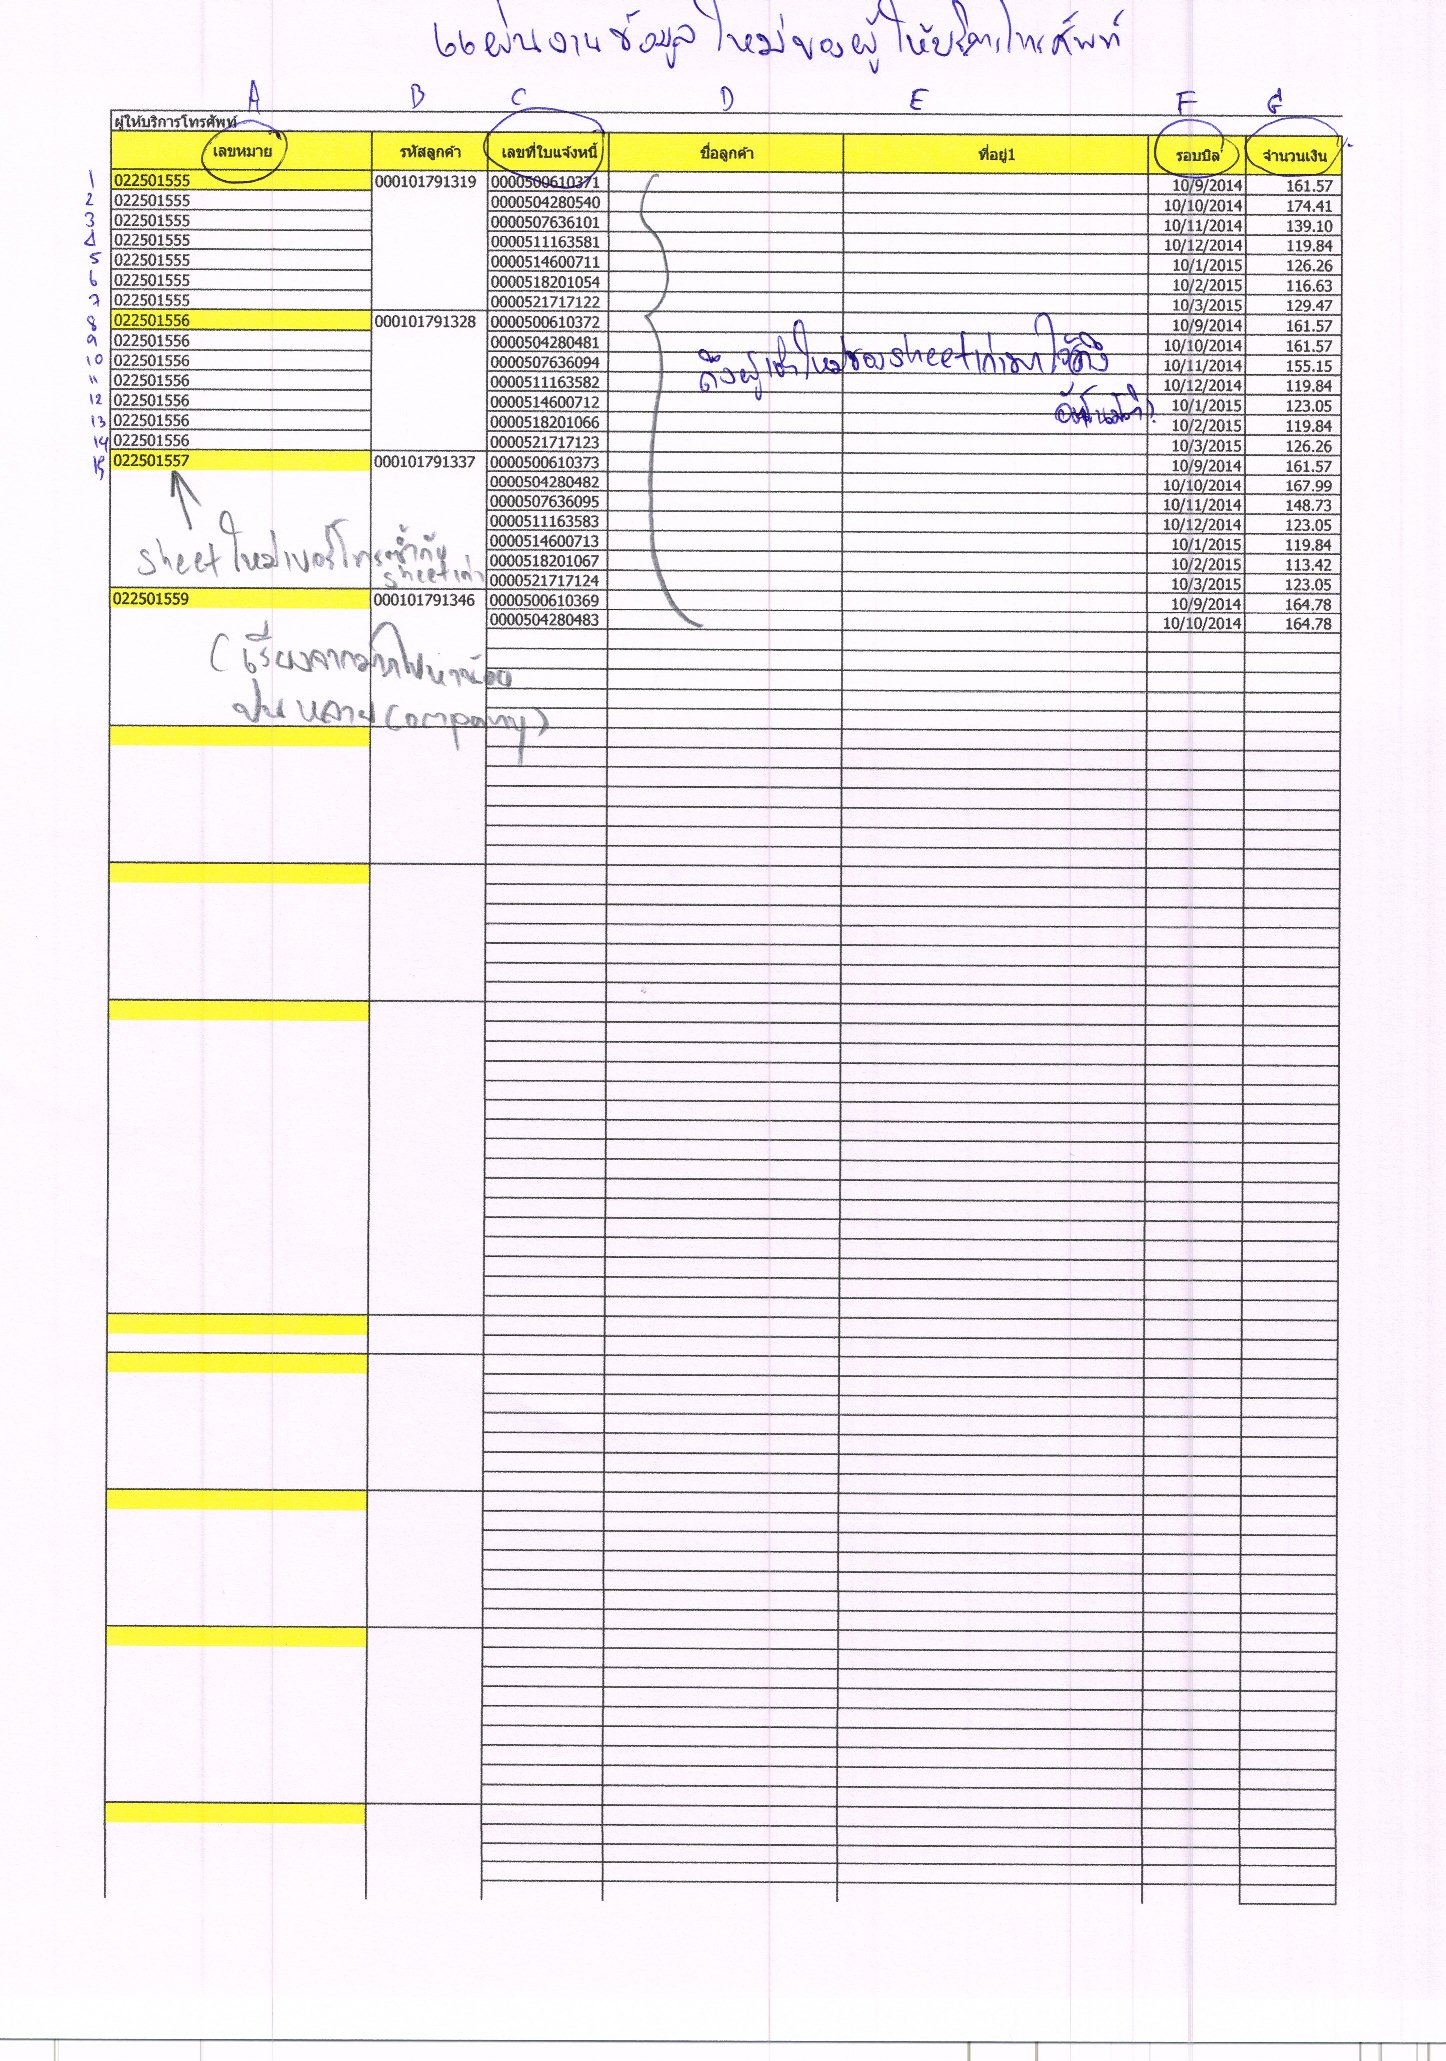 แผ่นงานข้อมูลใหม่ของผู้ให้บริการโทรศัพท์
A B C D E F G
ผู้ให้บริการโทรศัพท์
เลขหมาย รหัสลูกค้า เลขที่ใบแจ้งหนี้ ชื่อลูกค้า ที่อยู่1 รอบบิล จำนวนเงิน
1 022501555 000101791319 0000500610371 10/9/2014 161.57
2 022501555 0000504280540 10/10/2014 174.41
3 022501555 0000507636101 10/11/2014 139.10
4 022501555 0000511163581 10/12/2014 119.84
5 022501555 0000514600711 10/1/2015 126.26
6 022501555 0000518201054 10/2/2015 116.63
7 022501555 0000521717122 10/3/2015 129.47
8 022501556 000101791328 0000500610372 10/9/2014 161.57
9 022501556 0000504280481 10/10/2014 161.57
10 022501556 0000507636094 10/11/2014 155.15
11 022501556 0000511163582 10/12/2014 119.84
12 022501556 0000514600712 10/1/2015 123.05
13 022501556 0000518201066 10/2/2015 119.84
14 022501556 0000521717123 10/3/2015 126.26
15 022501557 000101791337 0000500610373 10/9/2014 161.57
0000504280482 10/10/2014 167.99
0000507636095 10/11/2014 148.73
0000511163583 10/12/2014 123.05
0000514600713 10/1/2015 119.84
0000518201067 10/2/2015 113.42
0000521717124 10/3/2015 123.05
022501559 000101791346 0000500610369 10/9/2014 164.78
0000504280483 10/10/2014 164.78
ดึงผู้เช่าใหม่ของsheetเก่ามาใส่
sheetใหม่เบอร์โทรซ้ำกับ
sheetเก่า
(เรียงจากมากไปหาน้อย
company)